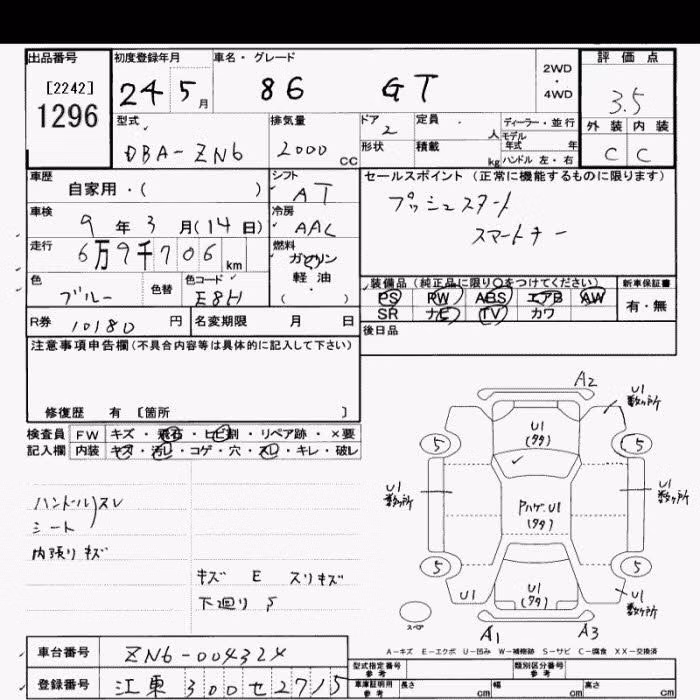 出品番号 初度登録年月 車名・グレード 評価点
[2242]
1296
24 5月 86 GT 2WD・4WD 3.5
型式 排気量 ドア 定員 人 ディーラー・並行 外装 内装
モデル年式 年
DBA-ZN6 2000cc 2 形状 積載 kg ハンドル 左・右 C C
車歴 シフト セールスポイント (正常に機能するものに限ります)
自家用・( ) AT プッシュスタート
車検 冷房 スマートキー
9年3月(14日) AAC
走行 燃料
6万9千706km ガソリン
軽・油
・( )
色 色替 色コード 装備品 (純正品に限り○をつけてください) 新車保証書
ブルー E8H PS PW ABS エアB AW 有・無
SR ナビ TV カワ
R券 10180円 名変期限 月 日 後日品
注意事項申告欄(不具合内容等は具体的に記入して下さい)
修復歴 有 [箇所 ]
検査員 FW キズ・飛石・ヒビ割・リペア跡・×要
記入欄 内装 キズ・汚レ・コゲ・穴・スレ・キレ・破レ
ハンドル)スレ
シート
内張りキズ
キズ E スリキズ
下廻り S
A2
U1
数ヶ所
U1
(タタ)
5 5
U1
数ヶ所
U1
数ヶ所
Pハゲ.U1
(タタ)
5 5
U1
U1
(タタ)
U1
数ヶ所
スペア
A1 A3
A-キズ E-エクボ U-凹み W-補修跡 S-サビ C-腐食 XX-交換済
車台番号 ZN6-004324 型式指定番号 参考 類別区分番号 参考
登録番号 江東300せ2715 車庫証明用 参考 長さ cm 幅 cm 高さ cm